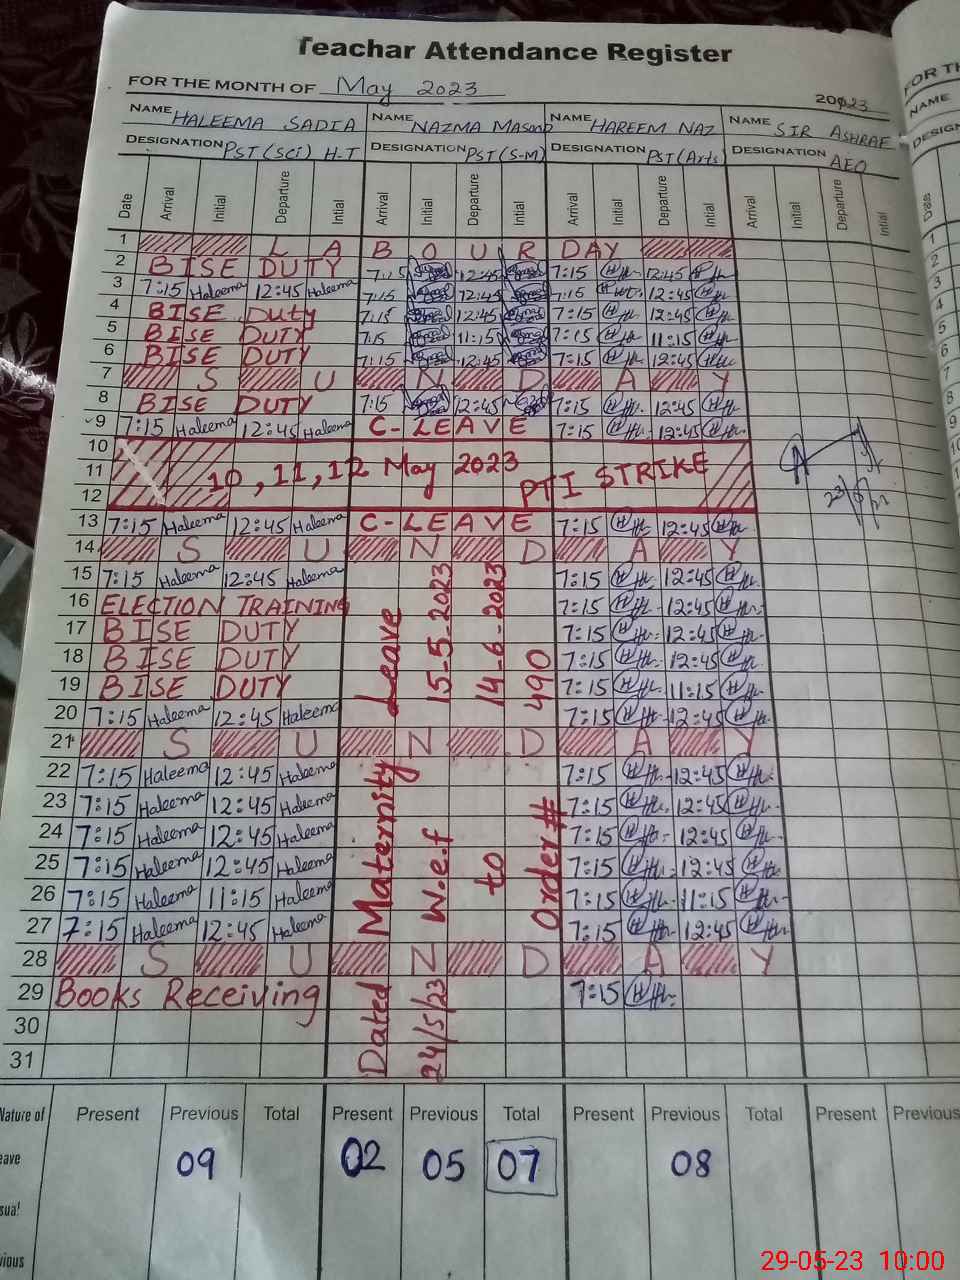 Teachar Attendance Register
FOR THE MONTH OF May 2023
202023
NAME HALEEMA SADIA NAME NAZMA Masood NAME HAREEM NAZ NAME SIR ASHRAF
DESIGNATION PST(Sci) H-T DESIGNATION PST(S-M) DESIGNATION PST(Arts) DESIGNATION AEO
Date Arrival Initial Departure Intial Arrival Initial Departure Intial Arrival Initial Departure Intial Arrival Initial Departure Intial
1 LABOUR DAY
2 BISE DUTY 7:15 12:45 7:15 12:45
3 7:15 Haleema 12:45 Haleema 7:15 12:45 7:15 12:45
4 BISE Duty 7:15 12:45 7:15 12:45
5 BISE DUTY 7:15 11:15 7:15 11:15
6 BISE DUTY 7:15 12:45 7:15 12:45
7 S U N D A Y
8 BISE DUTY 7:15 12:45 7:15 12:45
9 7:15 Haleema 12:45 Haleema C-LEAVE 7:15 12:45
10
11 10, 11, 12 May 2023 PTI STRIKE
12
13 7:15 Haleema 12:45 Haleema C-LEAVE 7:15 12:45
14 S U N D A Y
15 7:15 Haleema 12:45 Haleema 7:15 12:45
16 ELECTION TRAINING 7:15 12:45
17 BISE DUTY 7:15 12:45
18 BISE DUTY 7:15 12:45
19 BISE DUTY 7:15 11:15
20 7:15 Haleema 12:45 Haleema 7:15 12:45
21 S U N D A Y
22 7:15 Haleema 12:45 Haleema 7:15 12:45
23 7:15 Haleema 12:45 Haleema 7:15 12:45
24 7:15 Haleema 12:45 Haleema 7:15 12:45
25 7:15 Haleema 12:45 Haleema 7:15 12:45
26 7:15 Haleema 11:15 Haleema 7:15 11:15
27 7:15 Haleema 12:45 Haleema 7:15 12:45
28 S U N D A Y
29 Books Receiving 7:15
30
31
Dated Maternity Leave
24/5/23 w.e.f 15-5-2023
to 14-6-2023
Order # 490
Nature of Present Previous Total Present Previous Total Present Previous Total Present Previous
09 02 05 07 08
29-05-23 10:00